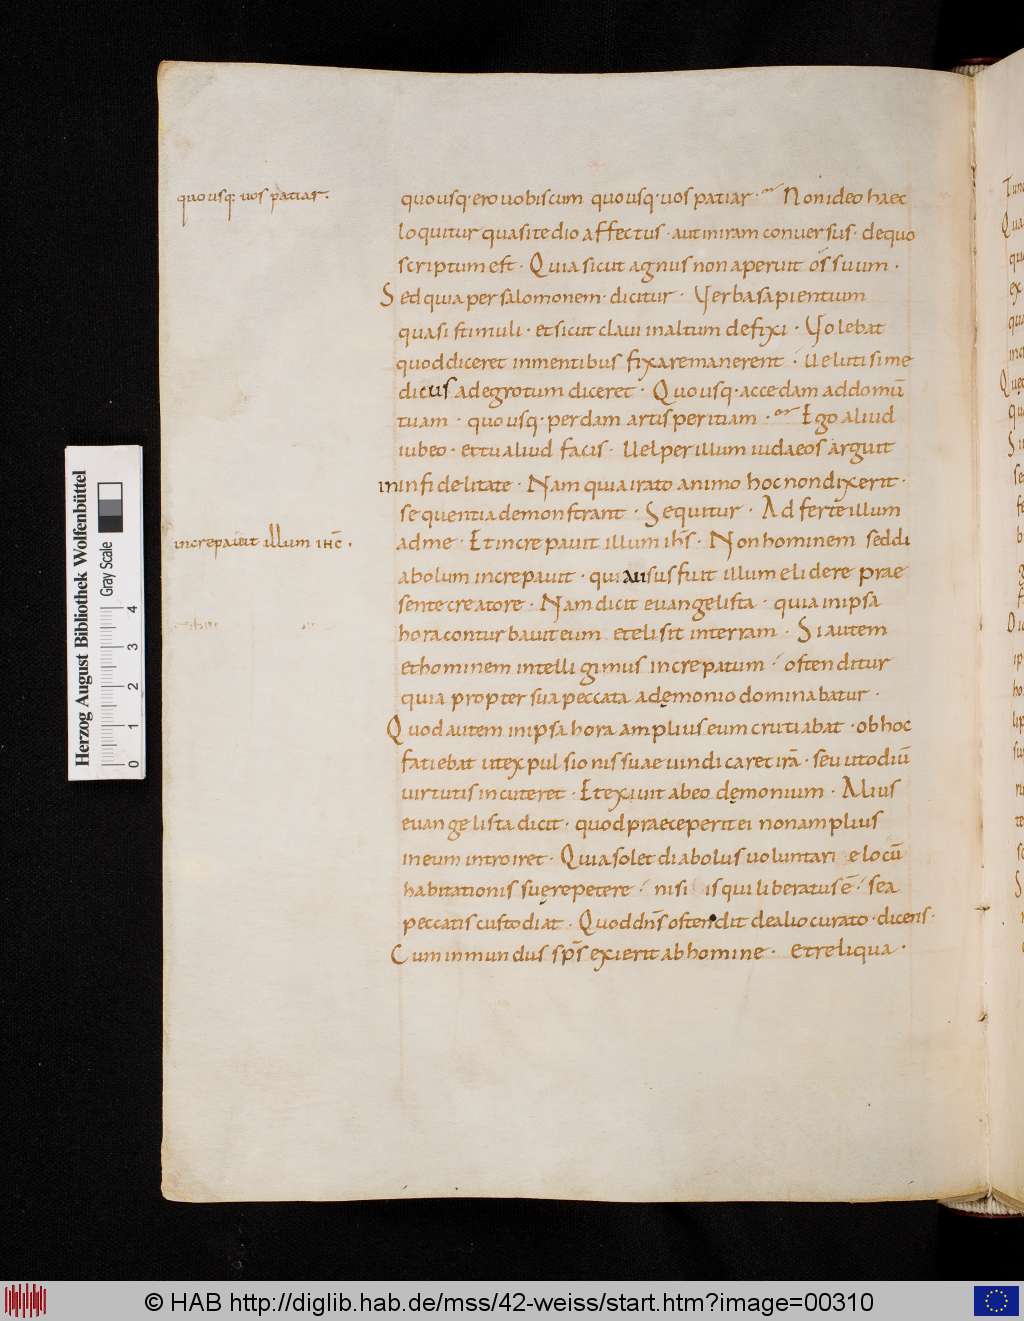 quousq; uos patiar.
quousq· ero uobiscum quousq· uos patiar · Non ideo haec
loquitur quasi tedio affectus · aut in iram conuersus · de quo
scriptum est · Quia sicut agnus non aperuit os suum ·
Sed quia per salomonem · dicitur · Verba sapientium
quasi stimuli · et sicut claui in altum defixi · Volebat
quod diceret in mentibus fixa remanerent · Uelut si me
dicus ad egrotum diceret · Quousq· accedam ad domū
tuam · quousq· perdam artis peritiam · Ego aliud
iubeo · et tu aliud facis · Uel per illum iudaeos arguit
in infidelitate · Nam quia irato animo hoc non dixerit ·
sequentia demonstrant · Sequitur · Adferte illum
ad me · Et increpauit illum ihs̄ · Non hominem sed di
increpauit illum ihc̄ .
abolum increpauit · qui ausus fuit illum elidere prae
sente creatore · Nam dicit euangelista · quia in ipsa
hora conturbauit eum et elisit in terram · Si autem
et hominem intelligimus increpatum · ostenditur
quia propter sua peccata a dęmonio dominabatur ·
Quod autem in ipsa hora amplius eum crutiabat · ob hoc
fatiebat ut expulsionis suae uindicaret irā · seu ut odiū
uirtutis incuteret · Et exiuit ab eo dęmonium · Alius
euangelista dicit · quod praeceperit ei non amplius
in eum introiret · Quia solet diabolus uoluntarie locū
habitationis suę repetere · nisi is qui liberatus ē · se a
peccatis custodiat · Quod dn̄s ostendit de alio curato · dicens ·
Cum inmundus sps̄ exierit ab homine · et reliqua ·
Herzog August Bibliothek Wolfenbüttel
Gray Scale
0 1 2 3 4
© HAB http://diglib.hab.de/mss/42-weiss/start.htm?image=00310